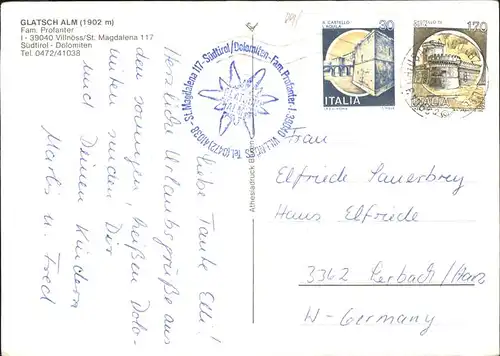 GLATSCH ALM (1902 m)
Fam. Profanter
I - 39040 Villnöss/St. Magdalena 117
Südtirol - Dolomiten
Tel. 0472/41038
Liebe Tante Elli!
Herzliche Urlaubsgrüße aus
den sonnigen, heißen Dolo-
miten senden Dir
und Deinen Kindern
Marlis u. Fred
St. Magdalena 117 - Südtirol/Dolomiten - Fam. Profanter I - 39040 VILLNÖSS Tel. (0472) 41038
Athesiadruck
30
ITALIA
170
ITALIA
Frau
Elfriede Sauerbrey
Haus Elfriede
3362 Lerbach/Harz
W-Germany